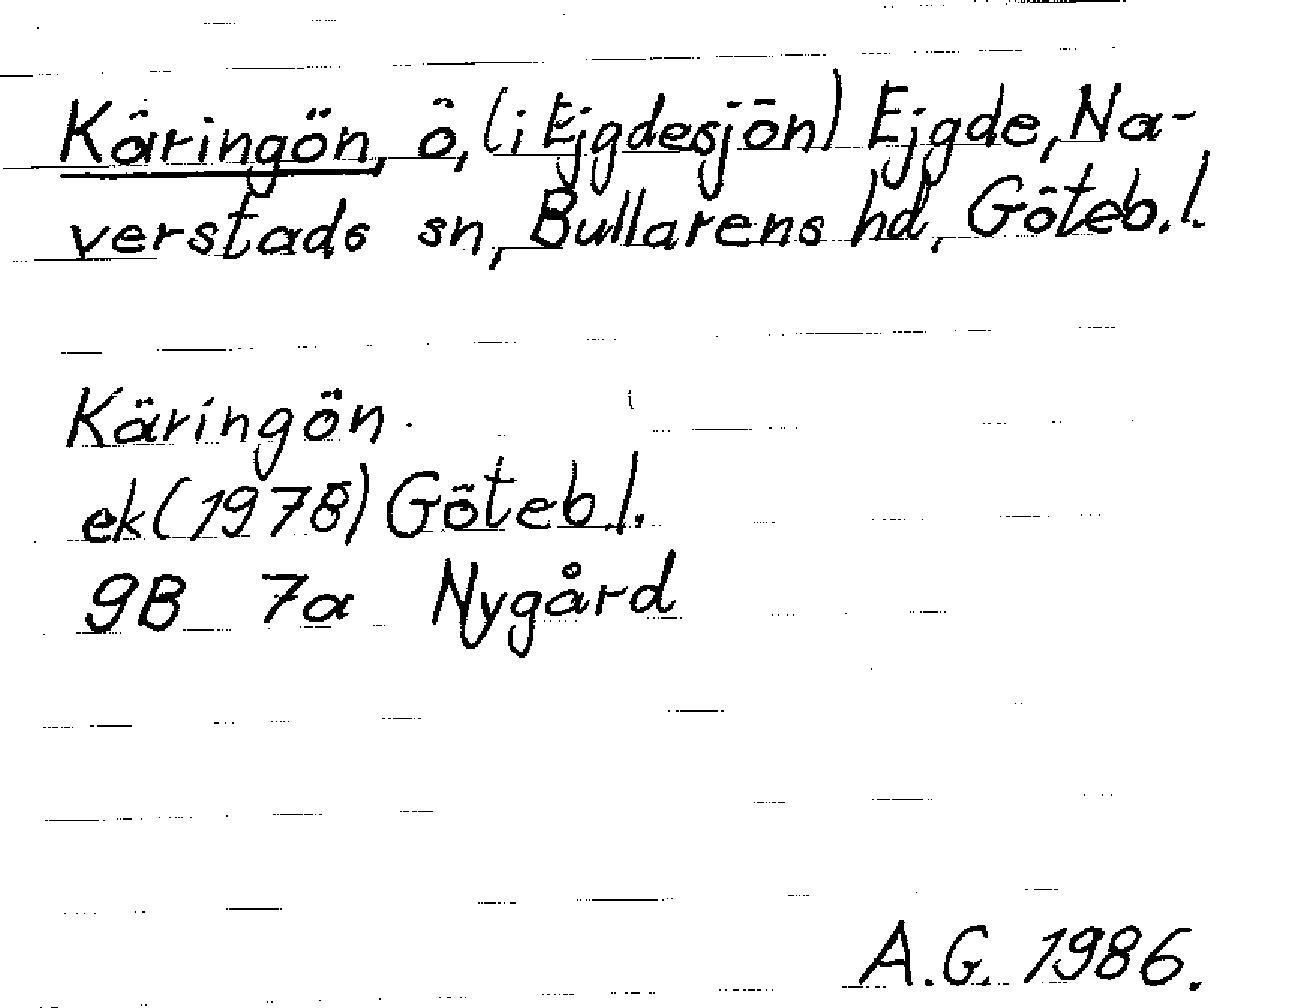 Käringön, ö, (i Ejgdesjön) Ejgde, Na-
verstads sn, Bullarens hd, Göteb. l.
Käringön.
ek (1978) Göteb. l.
9B 7a Nygård
A.G. 1986.